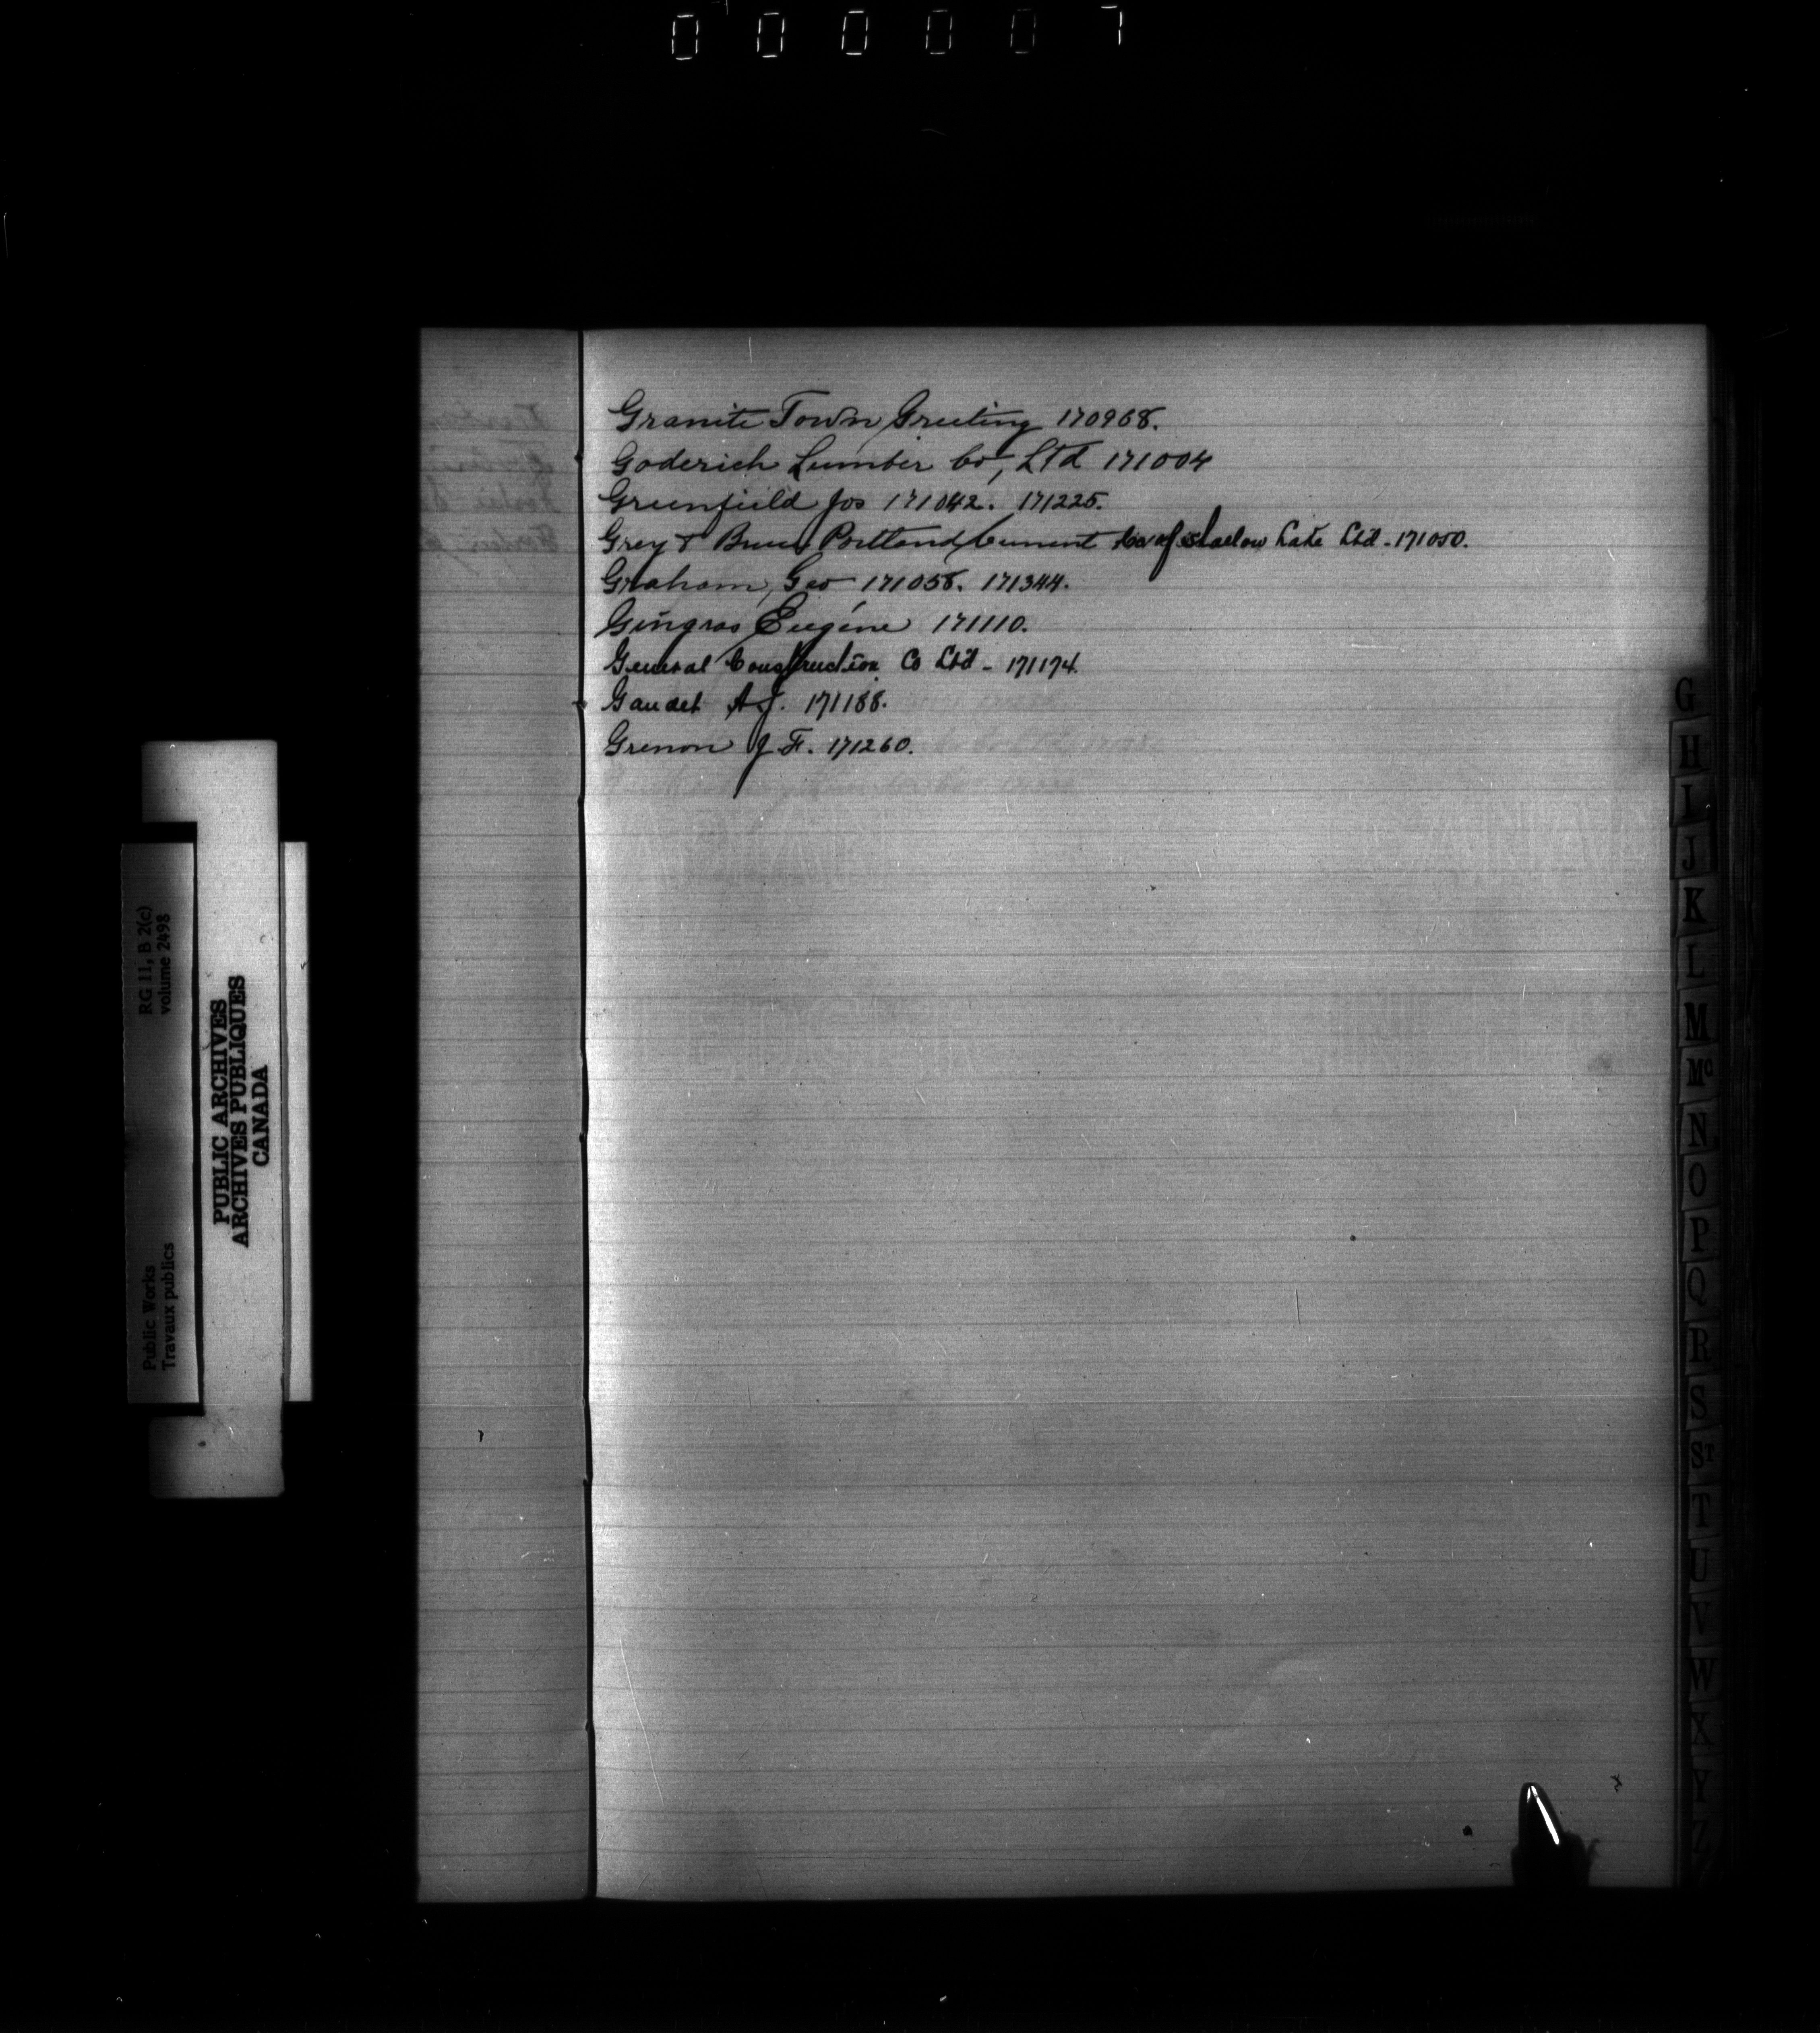 000007
Granite Town Greeting 170968.
Goderich Lumber Co, Ltd 171004
Greenfield Jos 171042. 171225.
Grey & Bruce Portland Cement Co of Shallow Lake Ltd - 171050.
Graham, Geo 171058. 171344.
Gingras Eugéne 171110.
General Construction Co Ltd - 171174.
Gaudet A.J. 171188.
Grenon J.F. 171260.
G
H
I
J
K
L
M
Mc
N
O
P
Q
R
S
ST
T
U
V
W
X
Y
Z
RG 11, B 2(c)
volume 2498
PUBLIC ARCHIVES
ARCHIVES PUBLIQUES
CANADA
Public Works
Travaux publics